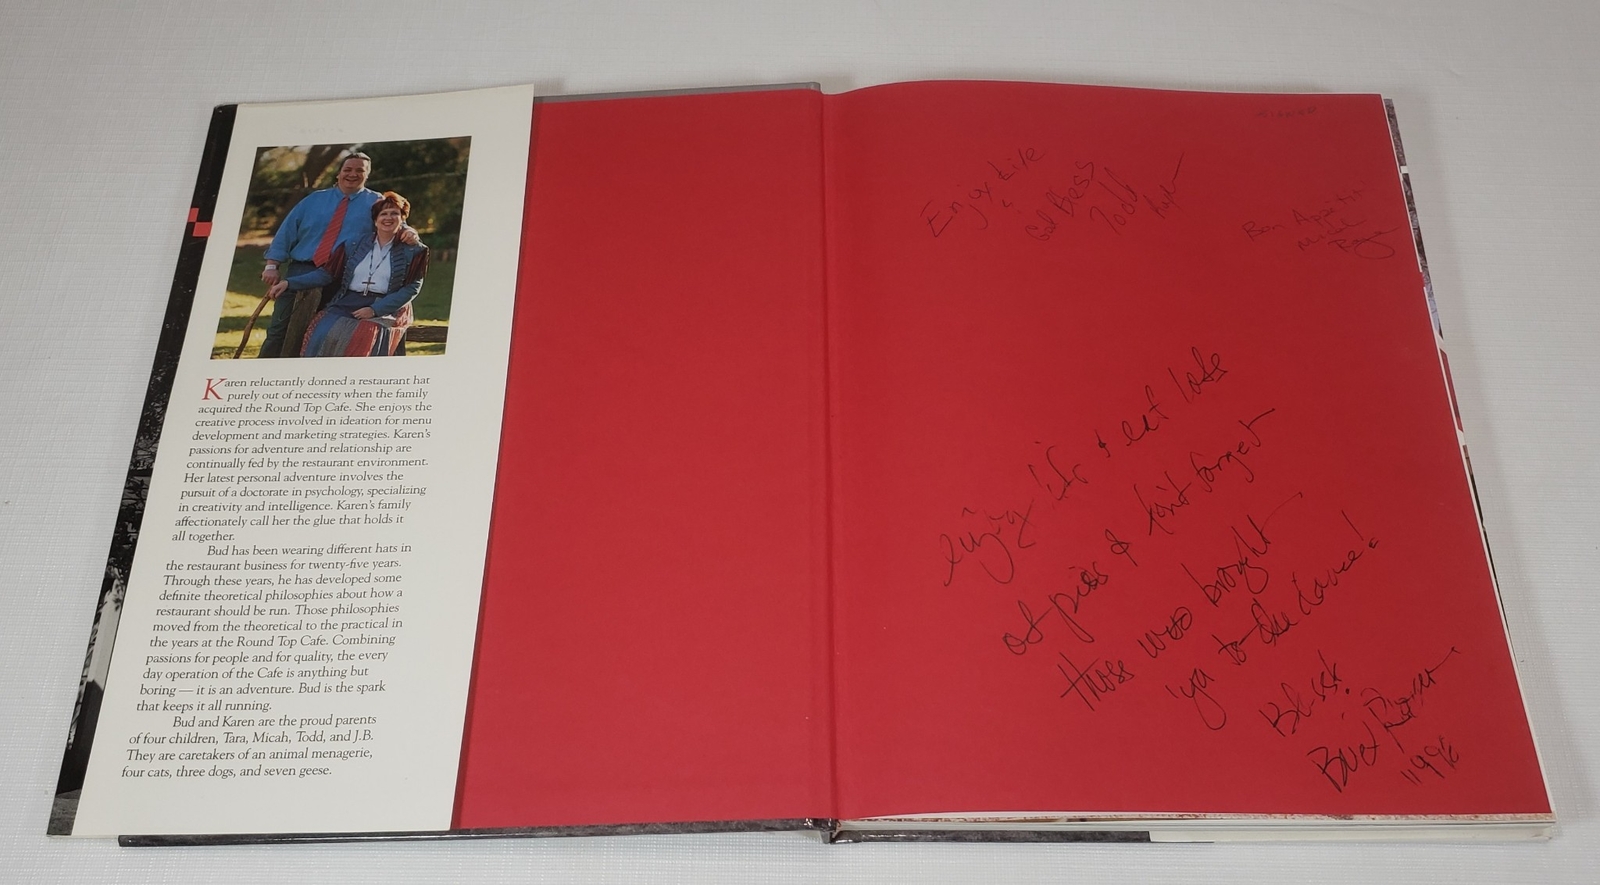 Karen reluctantly donned a restaurant hat
purely out of necessity when the family
acquired the Round Top Cafe. She enjoys the
creative process involved in ideation for menu
development and marketing strategies. Karen's
passions for adventure and relationship are
continually fed by the restaurant environment.
Her latest personal adventure involves the
pursuit of a doctorate in psychology, specializing
in creativity and intelligence. Karen's family
affectionately call her the glue that holds it
all together.
Bud has been wearing different hats in
the restaurant business for twenty-five years.
Through these years, he has developed some
definite theoretical philosophies about how a
restaurant should be run. Those philosophies
moved from the theoretical to the practical in
the years at the Round Top Cafe. Combining
passions for people and for quality, the every
day operation of the Cafe is anything but
boring — it is an adventure. Bud is the spark
that keeps it all running.
Bud and Karen are the proud parents
of four children, Tara, Micah, Todd, and J.B.
They are caretakers of an animal menagerie,
four cats, three dogs, and seven geese.
SIGNED
Enjoy Life
God Bess
Todd
Bon Appétit
Micah
enjoy life & eat lots
of pies & don't forget
those who brought
'ya to the dance!
Bless!
Bud